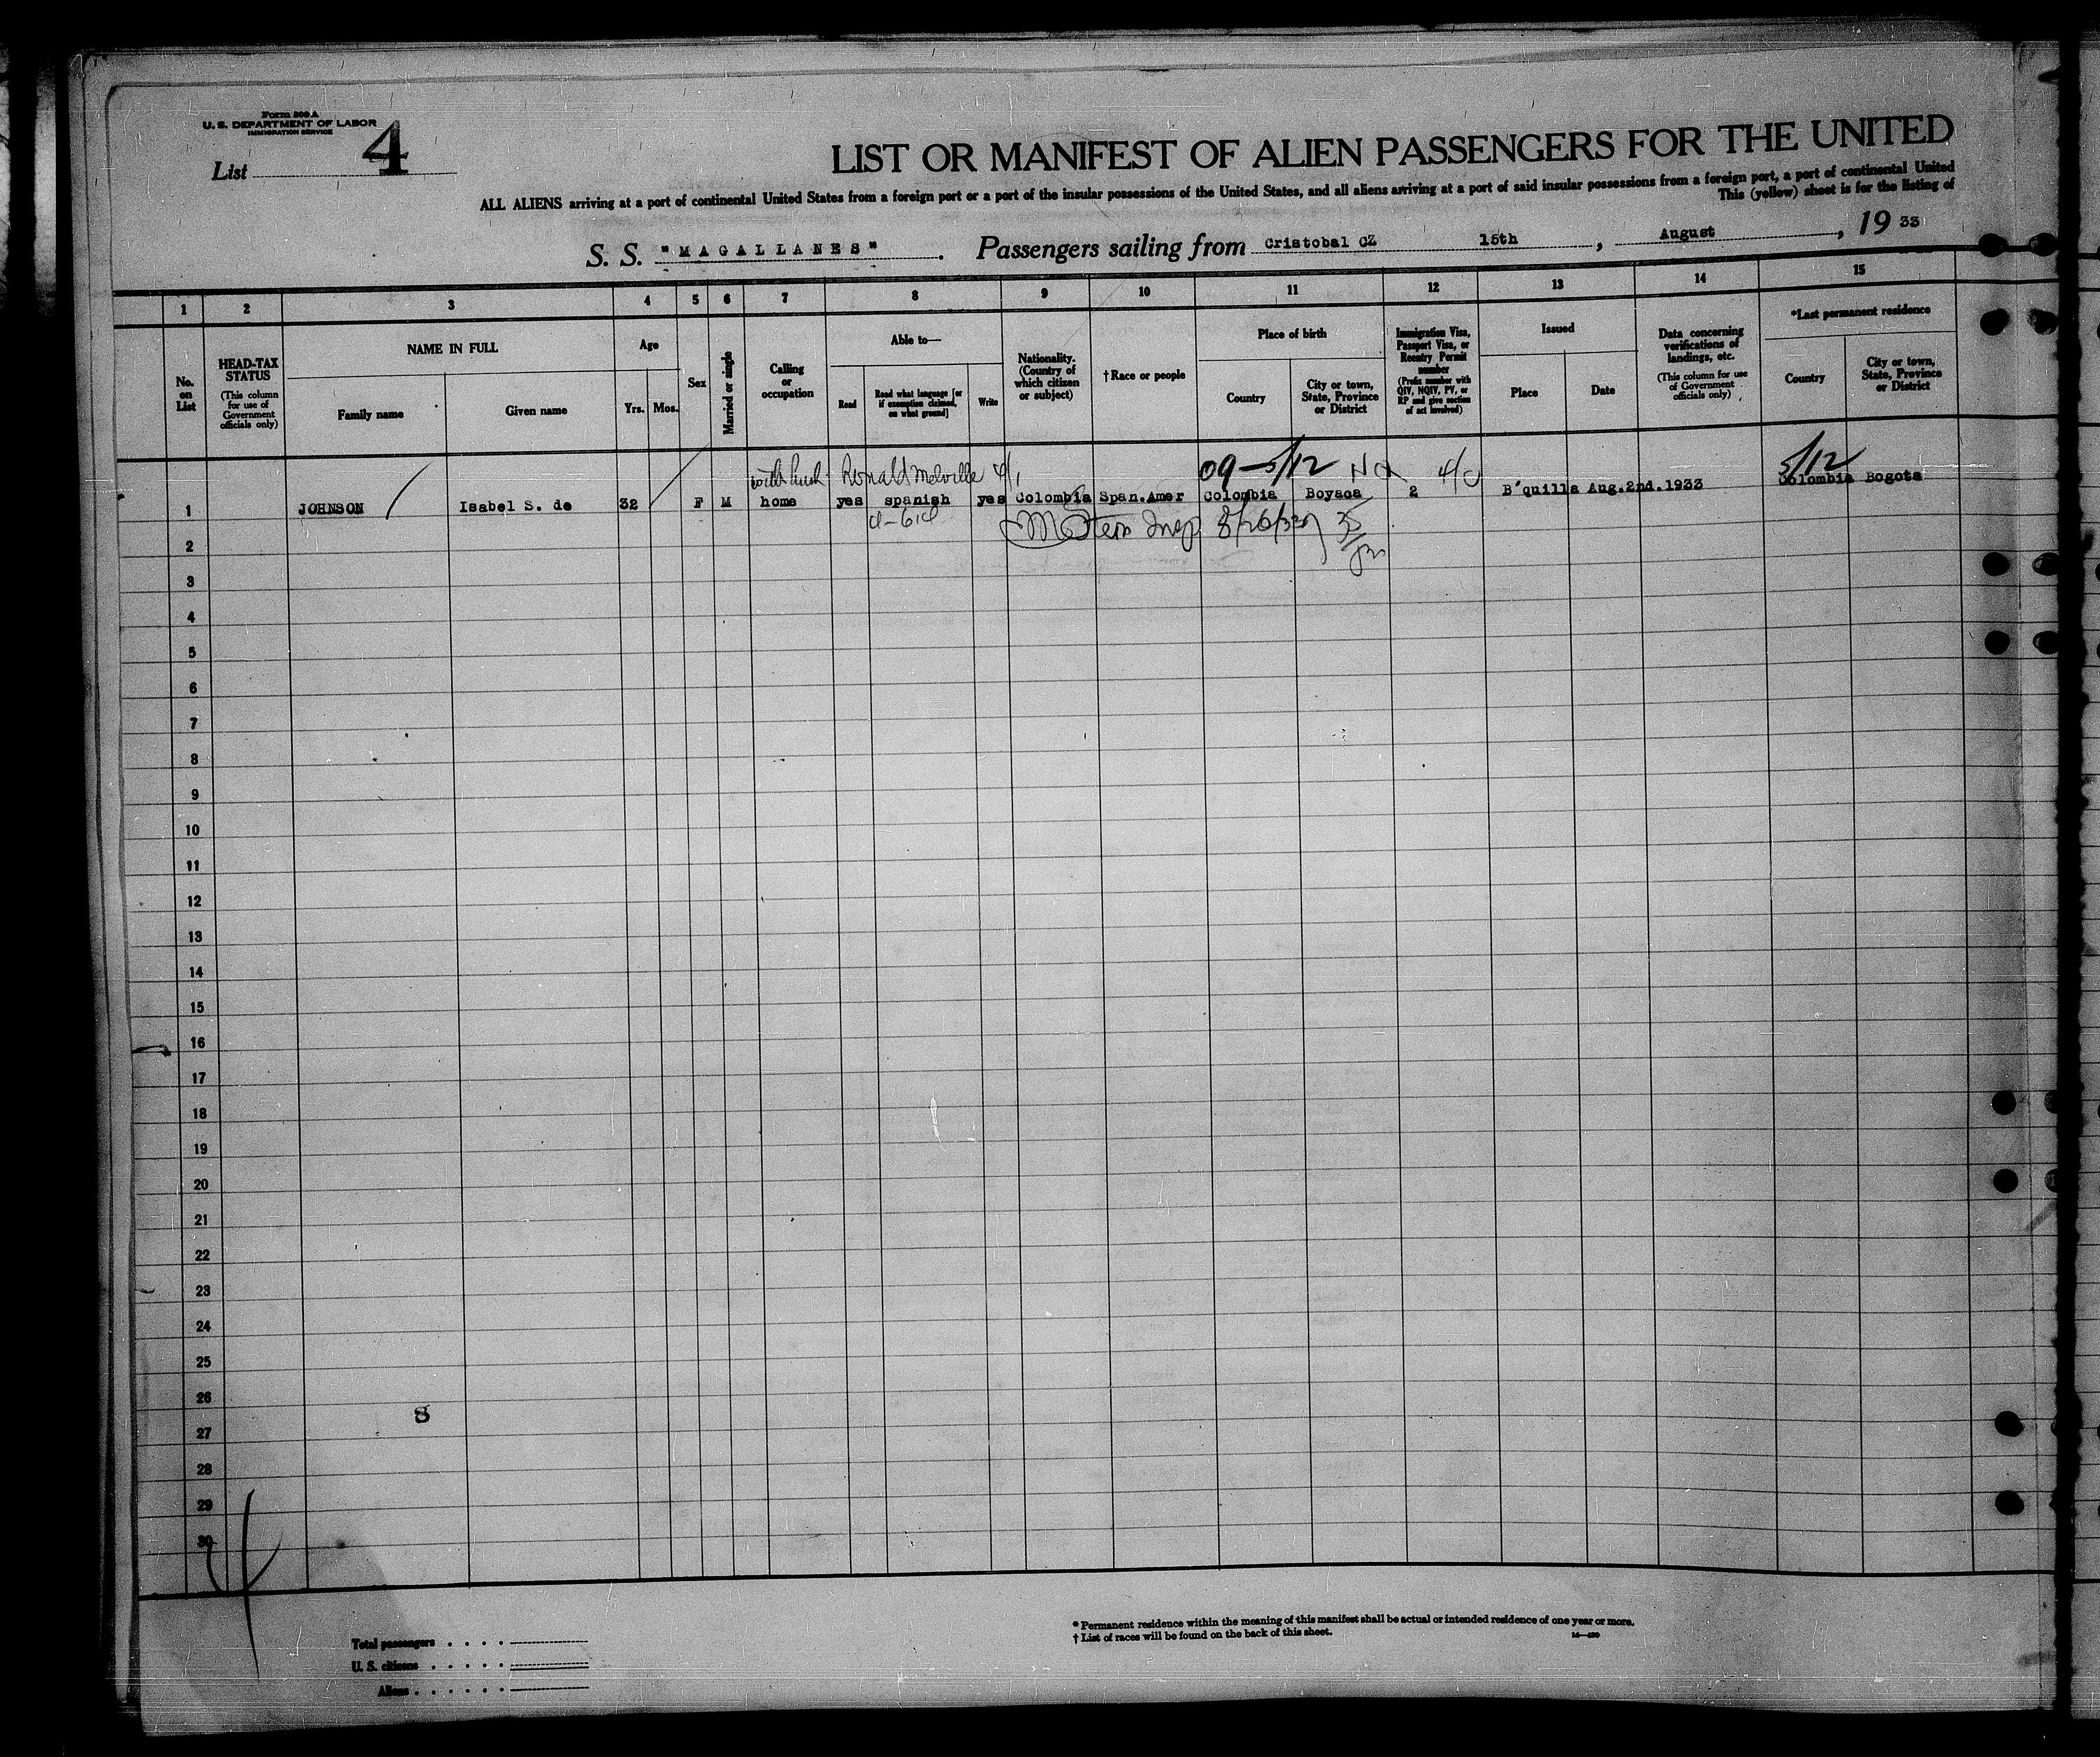 Form 500 A
U. S. DEPARTMENT OF LABOR
IMMIGRATION SERVICE
List 4
LIST OR MANIFEST OF ALIEN PASSENGERS FOR THE UNITED
ALL ALIENS arriving at a port of continental United States from a foreign port or a port of the insular possessions of the United States, and all aliens arriving at a port of said insular possessions from a foreign port, a port of continental United
This (yellow) sheet is for the listing of
S. S. "MAGALLANES". Passengers sailing from Cristobal CZ 15th, August, 19 33
1 2 3 4 5 6 7 8 9 10 11 12 13 14 15
No. on List
HEAD-TAX STATUS (This column for use of Government officials only)
NAME IN FULL
Family name
Given name
Age
Yrs. Mos.
Sex
Married or single
Calling or occupation
Able to—
Read
Read what language [or if exemption claimed, on what ground]
Write
Nationality. (Country of which citizen or subject)
†Race or people
Place of birth
Country
City or town, State, Province or District
Immigration Visa, Passport Visa, or Reentry Permit number (Prefix number with QIV, NQIV, PV, or RP and give section of act involved)
Issued
Place
Date
Data concerning verifications of landings, etc. (This column for use of Government officials only)
*Last permanent residence
Country
City or town, State, Province or District
with husb Ronald Melville 09-5/12 5/12
1 JOHNSON Isabel S. de 32 F M home yes spanish yes Colombia Span.Amer Colombia Boyaca 2 B'quilla Aug.2nd.1933 Colombia Bogota
Stern Insp 8/26/33
2
3
4
5
6
7
8
9
10
11
12
13
14
15
16
17
18
19
20
21
22
23
24
25
26
8
27
28
29
30
* Permanent residence within the meaning of this manifest shall be actual or intended residence of one year or more.
† List of races will be found on the back of this sheet.
Total passengers
U. S. citizens
Aliens